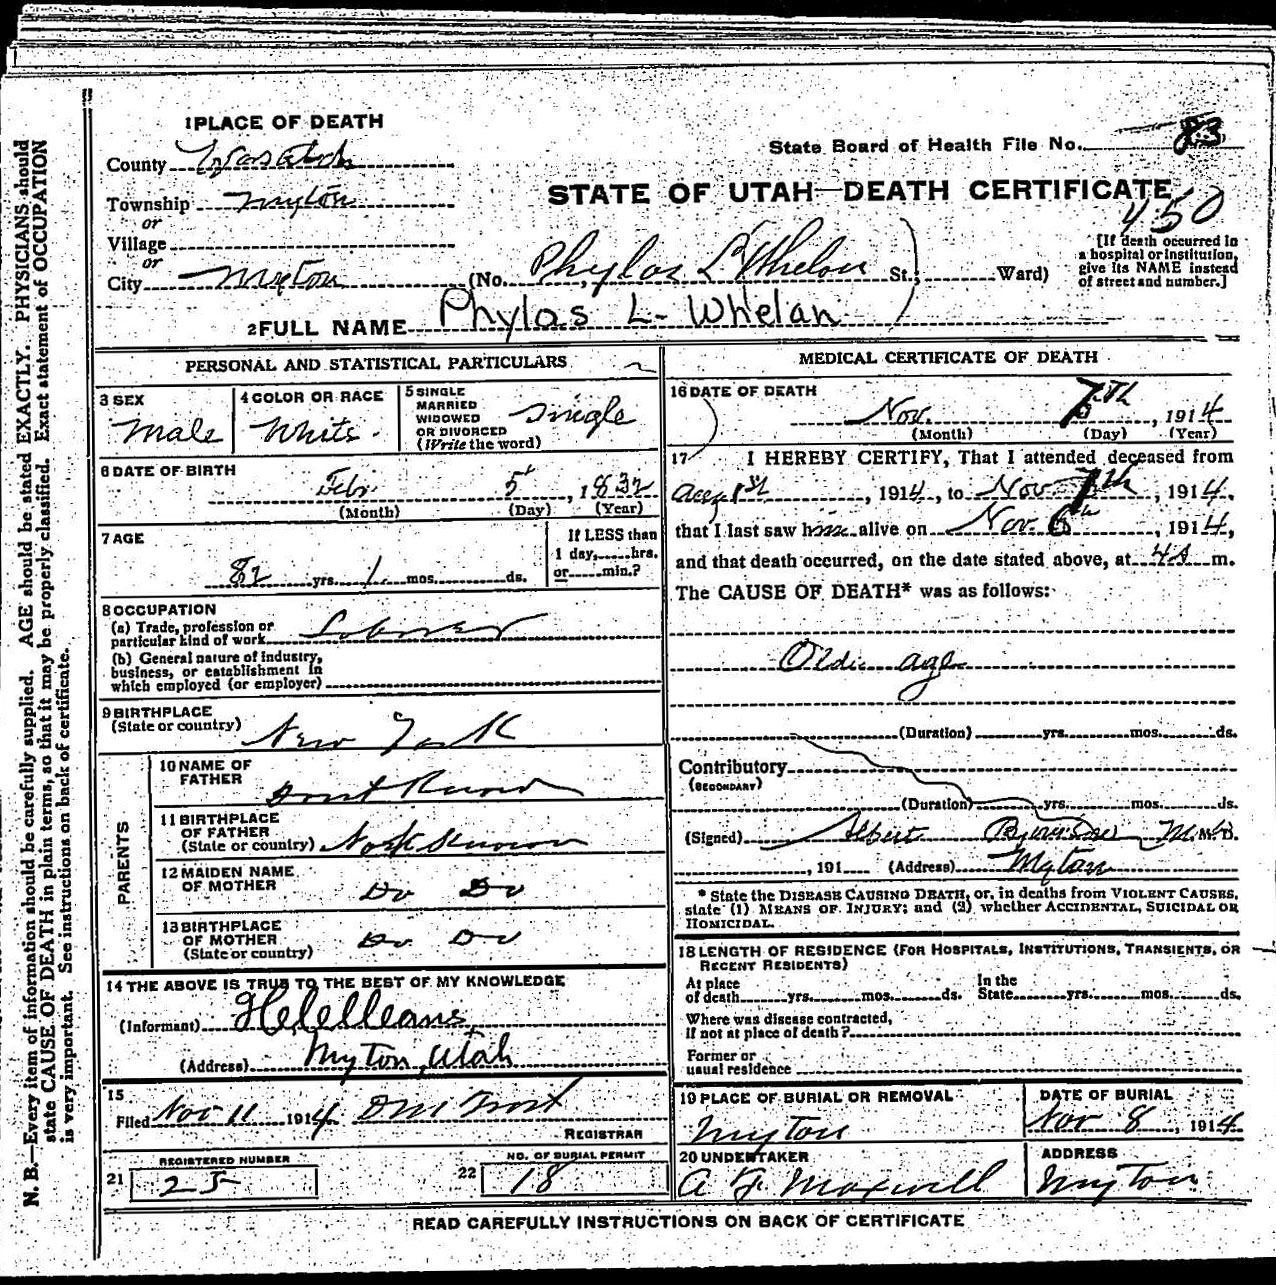 1 PLACE OF DEATH
County Wasatch
Township Myton
or
Village
or
City Myton (No. Phylos L Whelan St.; Ward)
State Board of Health File No. 83
STATE OF UTAH—DEATH CERTIFICATE
450
[If death occurred in
a hospital or institution,
give its NAME instead
of street and number.]
2 FULL NAME Phylos L. Whelan
PERSONAL AND STATISTICAL PARTICULARS
3 SEX
Male
4 COLOR OR RACE
White
5 SINGLE
MARRIED
WIDOWED
OR DIVORCED
(Write the word)
Single
6 DATE OF BIRTH
Feb. 5, 1832
(Month) (Day) (Year)
7 AGE
82 yrs. 1 mos. ds.
If LESS than
1 day, hrs.
or min.?
8 OCCUPATION
(a) Trade, profession or
particular kind of work Laborer
(b) General nature of industry,
business, or establishment in
which employed (or employer)
9 BIRTHPLACE
(State or country) New York
PARENTS
10 NAME OF
FATHER Dont Know
11 BIRTHPLACE
OF FATHER
(State or country) Not Known
12 MAIDEN NAME
OF MOTHER Do Do
13 BIRTHPLACE
OF MOTHER
(State or country) Do Do
14 THE ABOVE IS TRUE TO THE BEST OF MY KNOWLEDGE
(Informant)
(Address) Myton, Utah
15
Filed Nov 11 1914
REGISTRAR
REGISTERED NUMBER
21 25
NO. OF BURIAL PERMIT
22 18
MEDICAL CERTIFICATE OF DEATH
16 DATE OF DEATH
Nov. 7th, 1914
(Month) (Day) (Year)
17 I HEREBY CERTIFY, That I attended deceased from
Aug 1st, 1914, to Nov 7th, 1914,
that I last saw him alive on Nov. 6th, 1914,
and that death occurred, on the date stated above, at 4 A m.
The CAUSE OF DEATH* was as follows:
Old age
(Duration) yrs. mos. ds.
Contributory
(SECONDARY)
(Duration) yrs. mos. ds.
(Signed) Albert M.D.
, 191 (Address) Myton
* State the DISEASE CAUSING DEATH, or, in deaths from VIOLENT CAUSES,
state (1) MEANS OF INJURY; and (2) whether ACCIDENTAL, SUICIDAL OR
HOMICIDAL.
18 LENGTH OF RESIDENCE (FOR HOSPITALS, INSTITUTIONS, TRANSIENTS, OR
RECENT RESIDENTS)
At place
of death yrs. mos. ds.
In the
State yrs. mos. ds.
Where was disease contracted,
if not at place of death?
Former or
usual residence
19 PLACE OF BURIAL OR REMOVAL
Myton
DATE OF BURIAL
Nov 8, 1914
20 UNDERTAKER
A F Maxwell
ADDRESS
Myton
READ CAREFULLY INSTRUCTIONS ON BACK OF CERTIFICATE
N. B.—Every item of information should be carefully supplied. AGE should be stated EXACTLY. PHYSICIANS should
state CAUSE OF DEATH in plain terms, so that it may be properly classified. Exact statement of OCCUPATION
is very important. See instructions on back of certificate.